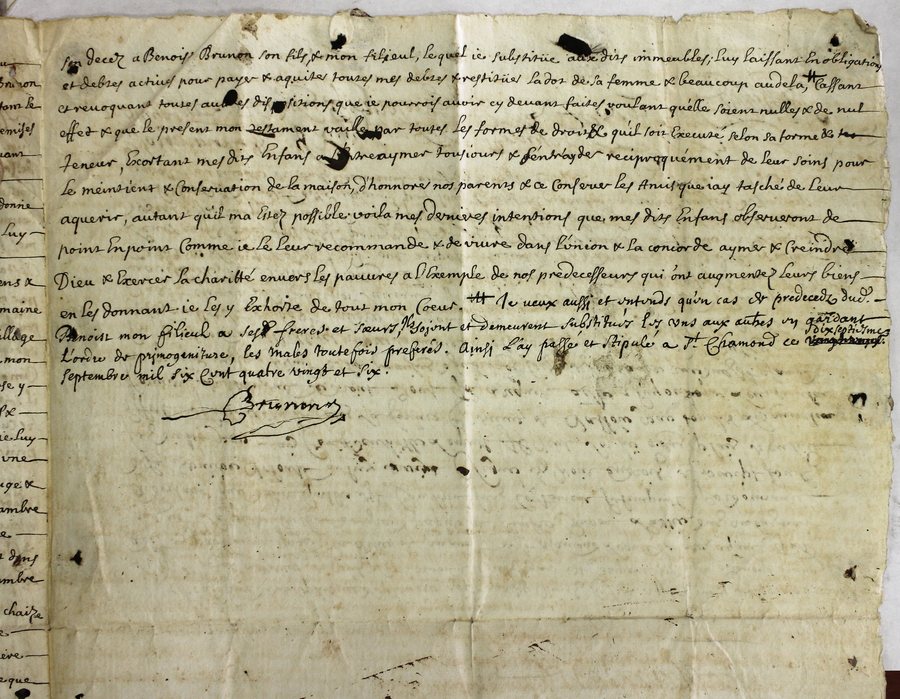 son decez a Benoist Brunon son fils & mon filieul, lequel ie substitüe aux dits immeubles, luy laissant En obligations
et debtes actives pour payer & aquiter toutes mes debtes & restitüer La dot de sa femme & beaucoup audela, # Cassant
et revoquant toutes autres dispositions que ie pourrois avoir cy devant faites voulant quelle soient nulles & de nul
effect & que le present mon testament vaille par toutes les formes de droit & quil soit Executé selon sa forme &
teneur, Exortant mes dits Enfans a s'Entreaymer tousiours & s'Entrayder reciproquement de leur soins pour
le meintient & Conservation de la maison, d'honnorer nos parents & ce Conserver les Amis que iay tasché de Leur
aquerir, autant quil ma Estez possible voila mes dernieres intentions que mes dits Enfans observeront de
point En point Comme ie le Leur recommande & de vivre dans l'union & la concorde aymer & Creindre
Dieu & Exercer la charitté envers les pauvres a l'Exemple de nos predecesseurs qui ont augmentez Leurs biens
en les donnant ie les y Exhorte de tout mon Coeur. # Je veux aussi et entends qu'en cas de predecedz dud.
Benoist mon filieul a ses freres et soeurs Ils soyent et demeurent substitués les uns aux autres en gardant
l'ordre de primogeniture, les males toutefois preferés. Ainsi l'ay passé et stipulé a St. Chamond ce dixseptiesme
septembre mil six Cent quatre vingt et six.
Brunon
Brunon
tant le
remises
uant
donne
Luy
ens &
maine
village
mon
se y
&
ie luy
une
uge &
ambre
e
t dans
ambre
chaize
e
ere
e que